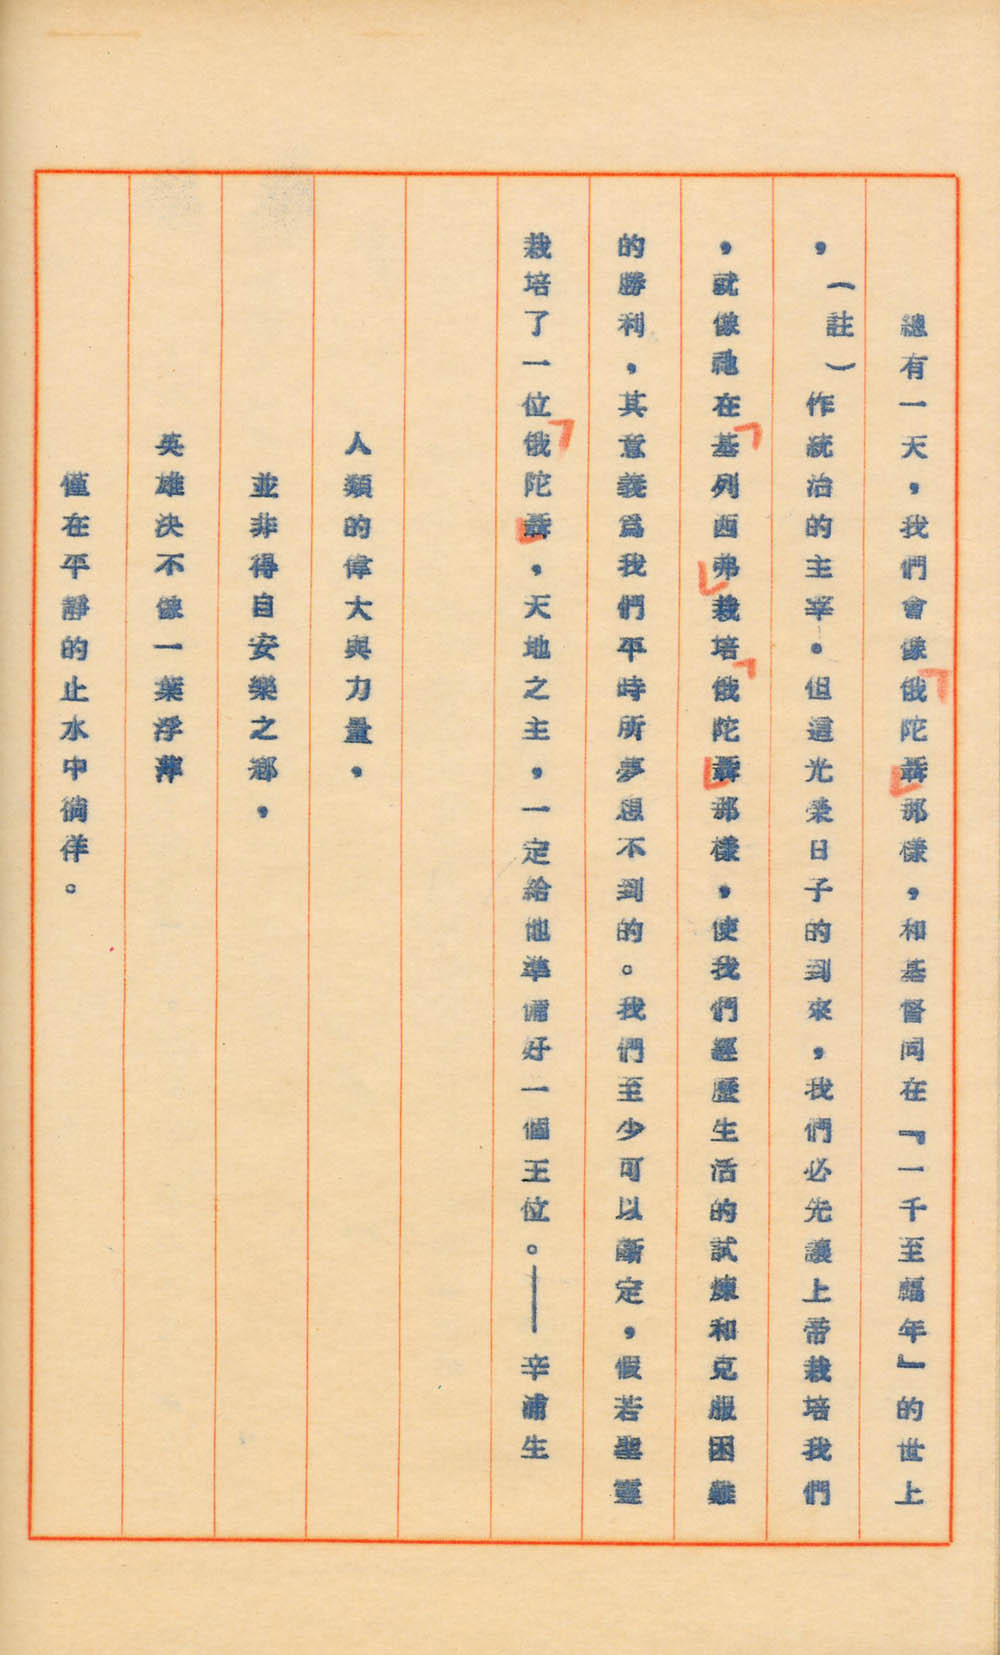 總有一天，我們會像俄陀聶那樣，和基督同在『一千至福年』的世上
，（註）作統治的主宰。但這光榮日子的到來，我們必先讓上帝栽培我們
，就像祂在基列西弗栽培俄陀聶那樣，使我們經歷生活的試煉和克服困難
的勝利，其意義爲我們平時所夢想不到的。我們至少可以斷定，假若聖靈
栽培了一位俄陀聶，天地之主，一定給他準備好一個王位。——辛浦生
人類的偉大與力量，
並非得自安樂之鄉，
英雄決不像一葉浮萍
僅在平靜的止水中徜徉。